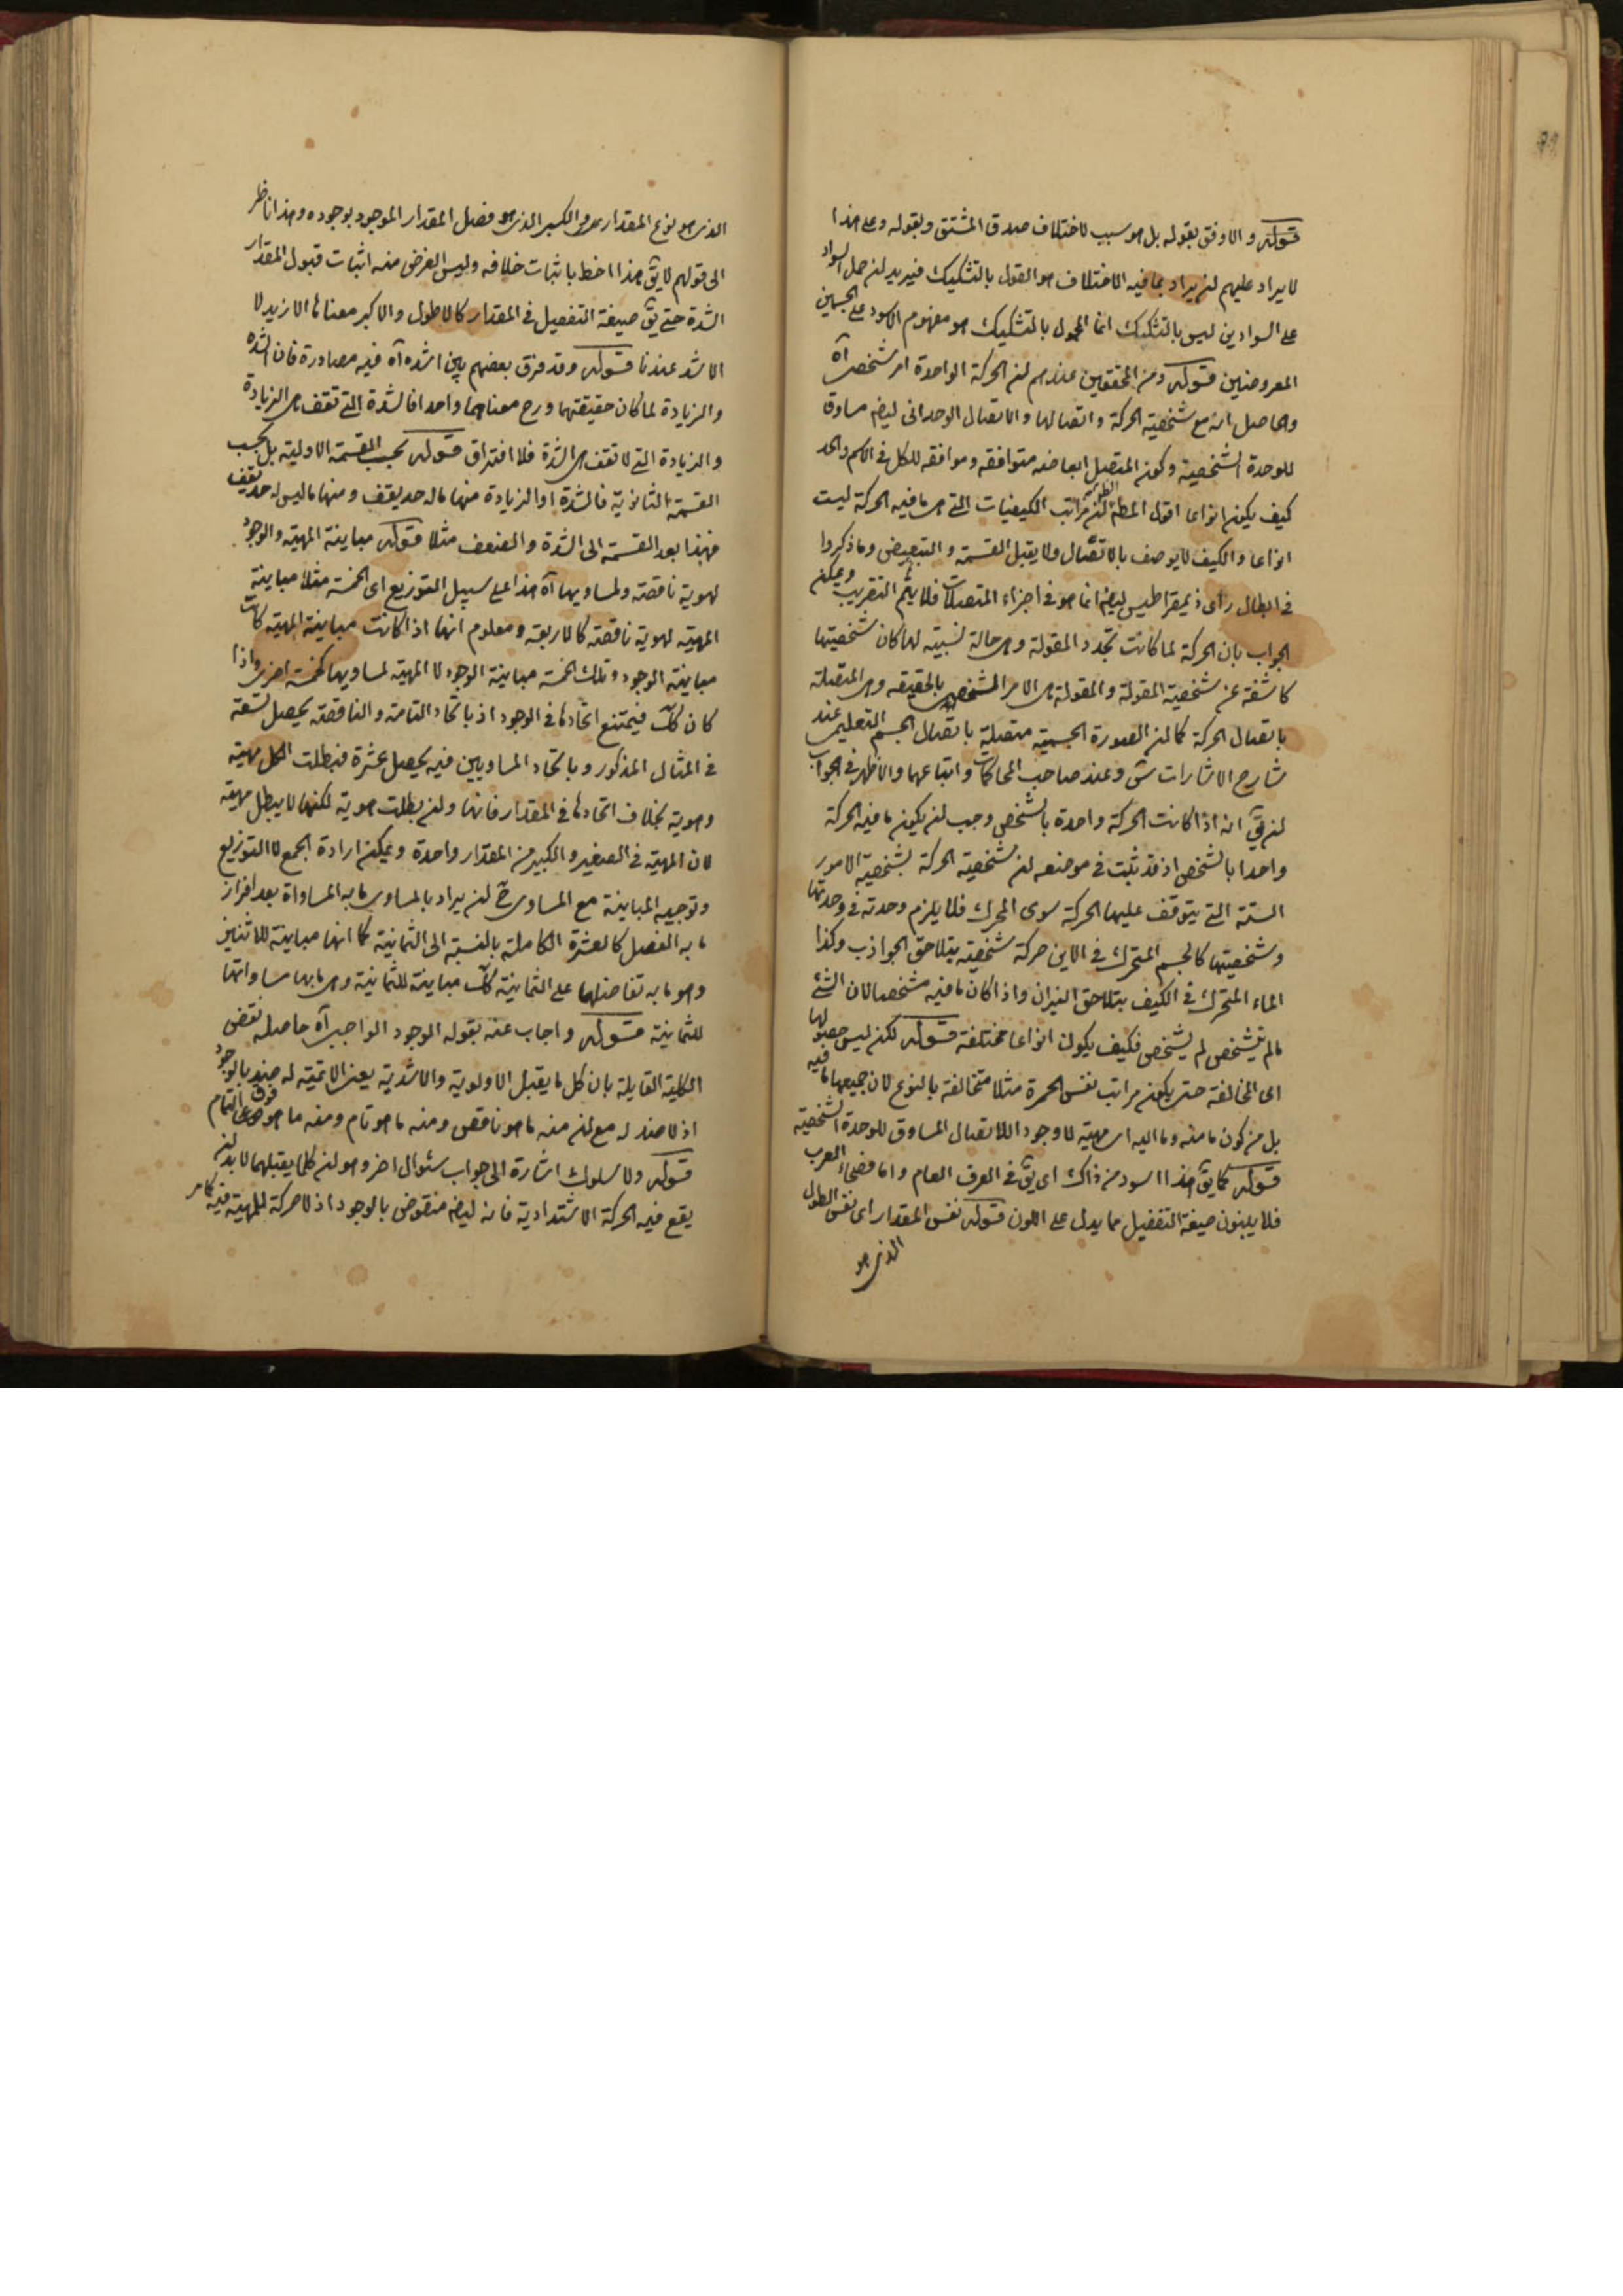 قوله والاوفق بقوله بل هو سبب لاختلاف صدق المشتق وبقوله وعلى هذا
لا يراد عليهم لن يراد بما فيه الاختلاف هو القول بالتشكيك فيريد لن حمل السواد
على السوادين ليس بالتشكيك انما المحمول بالتشكيك هو مفهوم الاسود على الجسمين
المعروضين قوله ومن المحققين عندهم لن الحركة الواحدة امر شخصى آه
والحاصل انه مع شخصية الحركة واتصالها والاتصال الوحدانى ليضه مساوق
للوحدة الشخصية وكون المتصل ابعاضه متوافقه وموافقه للكل فى الاسم والحد
كيف يكون انواعا اقول المطم لن مراتب الكيفيات التى هى ما فيه الحركة ليست
انواعا والكيف لا يوصف بالاتصال ولا يقبل القسمة والتبعيض وما ذكروا
فى ابطال راى ذيمقراطيس ليضه انما هو فى اجزاء المتصلات فلا يتم التقريب ويمكن
الجواب بان الحركة لما كانت تجدد المقولة وهى حالة نسبية لها كان شخصيتها
كاشفة عن شخصية المقولة والمقولة هى الامر المشخص بالحقيقه وهى المتصلة
باتصال الحركة كما لن الصورة الجسمية متصلة باتصال الجسم التعليمى عند
شارح الاشارات ش وعند صاحب المحاكمات واتباعهما والاظهر فى الجواب
لن يق انه اذا كانت الحركة واحدة بالشخص وجب لن يكون ما فيه الحركة
واحدا بالشخص اذ قد ثبت فى موضعه لن شخصية الحركة بشخصية الامور
الستة التى يتوقف عليها الحركة سوى المحرك فلا يلزم وحدته فى وحدتها
وشخصيتها كالجسم المتحرك فى الاين حركة شخصية بتلاحق الجواذب وكذا
الماء المتحرك فى الكيف بتلاحق النيران واذا كان ما فيه مشخصا لان الشئ
ما لم يتشخص لم يشخص فكيف يكون انواعا مختلفة قوله لكن ليس حصولها
اى المخالفة حتى يكون مراتب نفس الحمرة مثلا متخالفة بالنوع لان جميعها ما فيه
بل من كون ما منه وما اليه اى مهية لا وجود اللاتصال المساوق للوحدة الشخصية
قوله كما يق هذا اسود من ذاك اى يق فى العرف العام واما فصحاء العرب
فلا يبنون صيغة التفضيل مما يدل على اللون قوله نفس المقدار اى نفس الطول
الذى هو
الذى هو نوع المقدار هو الكبير الذى هو فصل المقدار الموجود بوجوده وهذا ناظر
الى قولهم لا يق هذا اخط باثبات خلافه وليس الغرض منه اثبات قبول المقدار
الشدة حتى يق صيغة التفضيل فى المقدار كالاطول والاكبر معناها الازيد لا
الاشد عندنا قوله وقد فرق بعضهم بين اشده آه فيه مصادرة فان الشدة
والزيادة لما كان حقيقتهما ورح معناهما واحدا فالشدة التى تقف هى الزيادة
والزيادة التى لا تقف هى الشدة فلا افتراق قوله بحسب القسمة الاولية بل بحسب
القسمة الثانوية فالشدة او الزيادة منها ما له حد يقف ومنها ما ليس له حد يقف
فهذا بعد القسمة الى الشدة والضعف مثلا قوله مباينة المهية والوجود
لهوية ناقصة ولمساويها آه هذا على سبيل التوزيع اى الخمسة مثلا مباينة
المهية لهوية ناقصة كالاربعة ومعلوم انها اذا كانت مباينة المهية كانت
مباينة الوجود وتلك الخمسة مباينة الوجود لا المهية لمساويها كخمسة اخرى واذا
كان كك فيمتنع اتحادها فى الوجود اذ باتحاد التامة والناقصة يحصل تسعة
فى المثال المذكور وباتحاد المساويين فيه يحصل عشرة فبطلت الكل مهية
وهوية بخلاف اتحادها فى المقدار فانها ولن بطلت هوية لكنها لا يبطل مهية
لان المهية فى الصغير والكبير من المقدار واحدة ويمكن ارادة الجمع لا التوزيع
وتوجيه المباينة مع المساوى ح لن يراد بالمساوى ما به المساواة بعد افراز
ما به الفضل كالعشرة الكاملة بالنسبة الى الثمانية كما انها مباينة للاثنين
وهو ما به تفاضلها على الثمانية كك مباينة للثمانية وهى ما بها مساواتها
للثمانية قوله واجاب عنه بقوله الوجود الواجبى آه حاصله نقض
الكلية القايلة بان كل ما يقبل الاولوية والاشدية يعنى الاتمية له ضد بالوجود
اذ لا ضد له مع لن منه ما هو ناقص ومنه ما هو تام ومنه ما هو فوق التمام
قوله ولا سلوك اشارة الى جواب سئوال اخر وهو لن كلما يقبلهما لا بد لن
يقع فيه الحركة الاشتدادية فانه ليضه منقوض بالوجود اذ لا حركة للمهية فيه كما مر